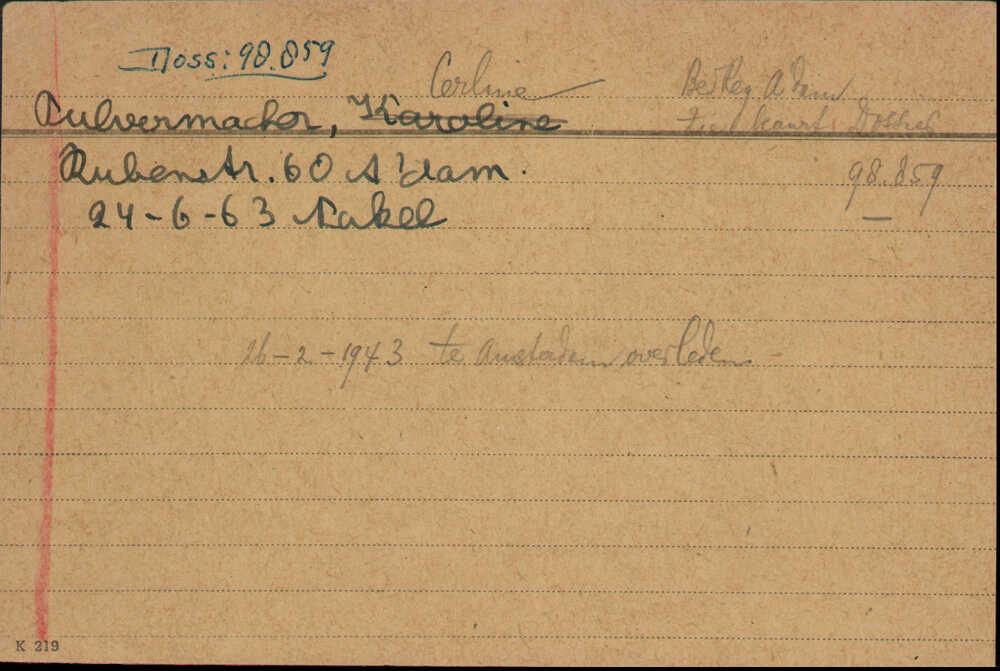 Doss: 98.859
Cerline
Pulvermacher, Karoline
Bev Reg A'dam
kaart Dossier
98.859
Rubenstr. 60 A'dam.
24-6-63 Nakel
26-2-1943 te Amsterdam overleden
K 219